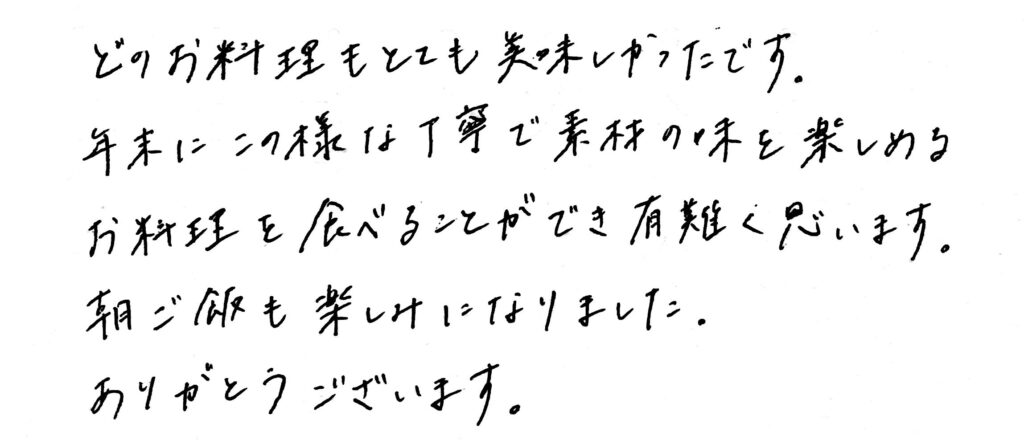 どのお料理もとても美味しかったです。
年末にこの様な丁寧で素材の味を楽しめる
お料理を食べることができ有難く思います。
朝ご飯も楽しみになりました。
ありがとうございます。